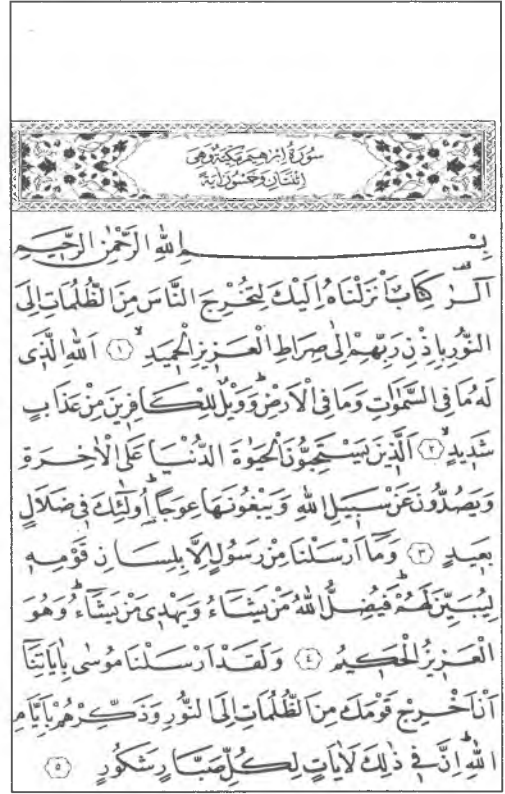 سُورَةُ اِبْرٰهِيمَ مَكِّيَّةٌ وَهِيَ
اِثْنَتَانِ وَخَمْسُونَ اٰيَةً
بِسْــــــــمِ اللّٰهِ الرَّحْمٰنِ الرَّحٖيمِ
الٓرٰ كِتَابٌ اَنْزَلْنَاهُ اِلَيْكَ لِتُخْرِجَ النَّاسَ مِنَ الظُّلُمَاتِ اِلَى
النُّورِ بِاِذْنِ رَبِّهِمْ اِلٰى صِرَاطِ الْعَزٖيزِ الْحَمٖيدِۙ ﴿١﴾ اَللّٰهِ الَّذٖى
لَهُ مَا فِى السَّمٰوَاتِ وَمَا فِى الْاَرْضِؕ وَوَيْلٌ لِلْكَافِرٖينَ مِنْ عَذَابٍ
شَدٖيدٍۙ ﴿٢﴾ اَلَّذٖينَ يَسْتَحِبُّونَ الْحَيٰوةَ الدُّنْيَا عَلَى الْاٰخِرَةِ
وَيَصُدُّونَ عَنْ سَبٖيلِ اللّٰهِ وَيَبْغُونَهَا عِوَجًاؕ اُولٰٓئِكَ فٖى ضَلَالٍ
بَعٖيدٍ ﴿٣﴾ وَمَٓا اَرْسَلْنَا مِنْ رَسُولٍ اِلَّا بِلِسَانِ قَوْمِهٖ
لِيُبَيِّنَ لَهُمْؕ فَيُضِلُّ اللّٰهُ مَنْ يَشَٓاءُ وَيَهْدٖى مَنْ يَشَٓاءُؕ وَهُوَ
الْعَزٖيزُ الْحَكٖيمُ ﴿٤﴾ وَلَقَدْ اَرْسَلْنَا مُوسٰى بِاٰيَاتِنَٓا
اَنْ اَخْرِجْ قَوْمَكَ مِنَ الظُّلُمَاتِ اِلَى النُّورِ وَذَكِّرْهُمْ بِاَيَّامِ
اللّٰهِؕ اِنَّ فٖى ذٰلِكَ لَاٰيَاتٍ لِكُلِّ صَبَّارٍ شَكُورٍ ﴿٥﴾